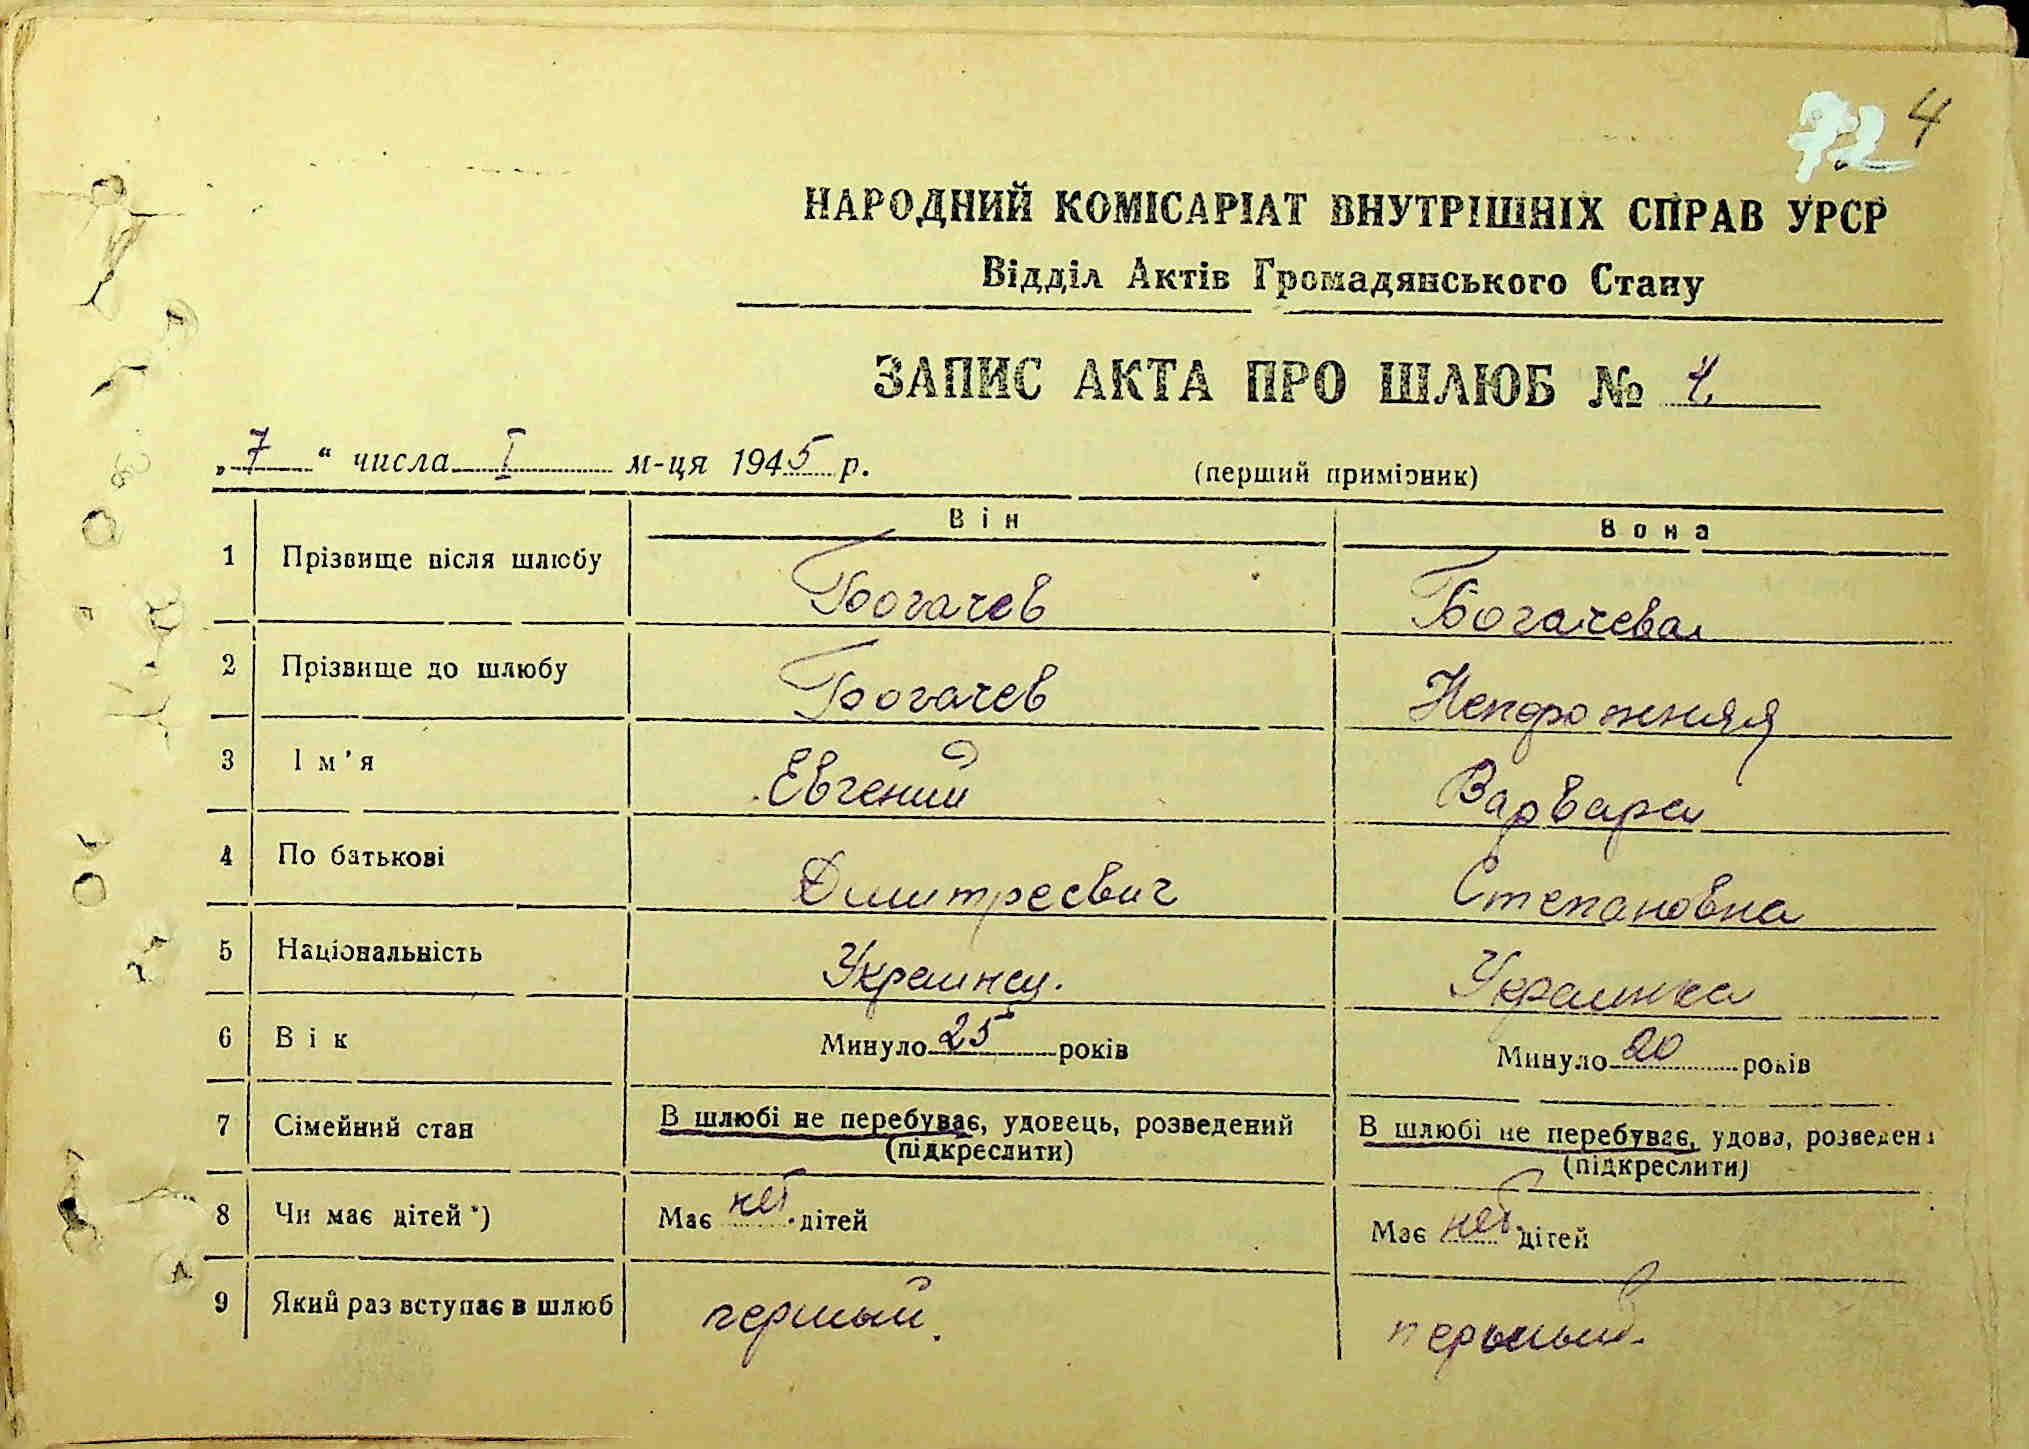 72 4
НАРОДНИЙ КОМІСАРІАТ ВНУТРІШНІХ СПРАВ УРСР
Відділ Актів Громадянського Стану
ЗАПИС АКТА ПРО ШЛЮБ № 4
„7“ числа I м-ця 1945 р. (перший примірник)
Він Вона
1 Прізвище після шлюбу Богачев Богачева
2 Прізвище до шлюбу Богачев Непорожняя
3 Ім'я Евгений Варвара
4 По батькові Дмитреевич Степановна
5 Національність Украинец. Украинка
6 Вік Минуло 25 років Минуло 20 років
7 Сімейний стан В шлюбі не перебуває, удовець, розведений В шлюбі не перебуває, удова, розведена
(підкреслити) (підкреслити)
8 Чи має дітей *) Має нет дітей Має нет дітей
9 Який раз вступає в шлюб первый. первый.